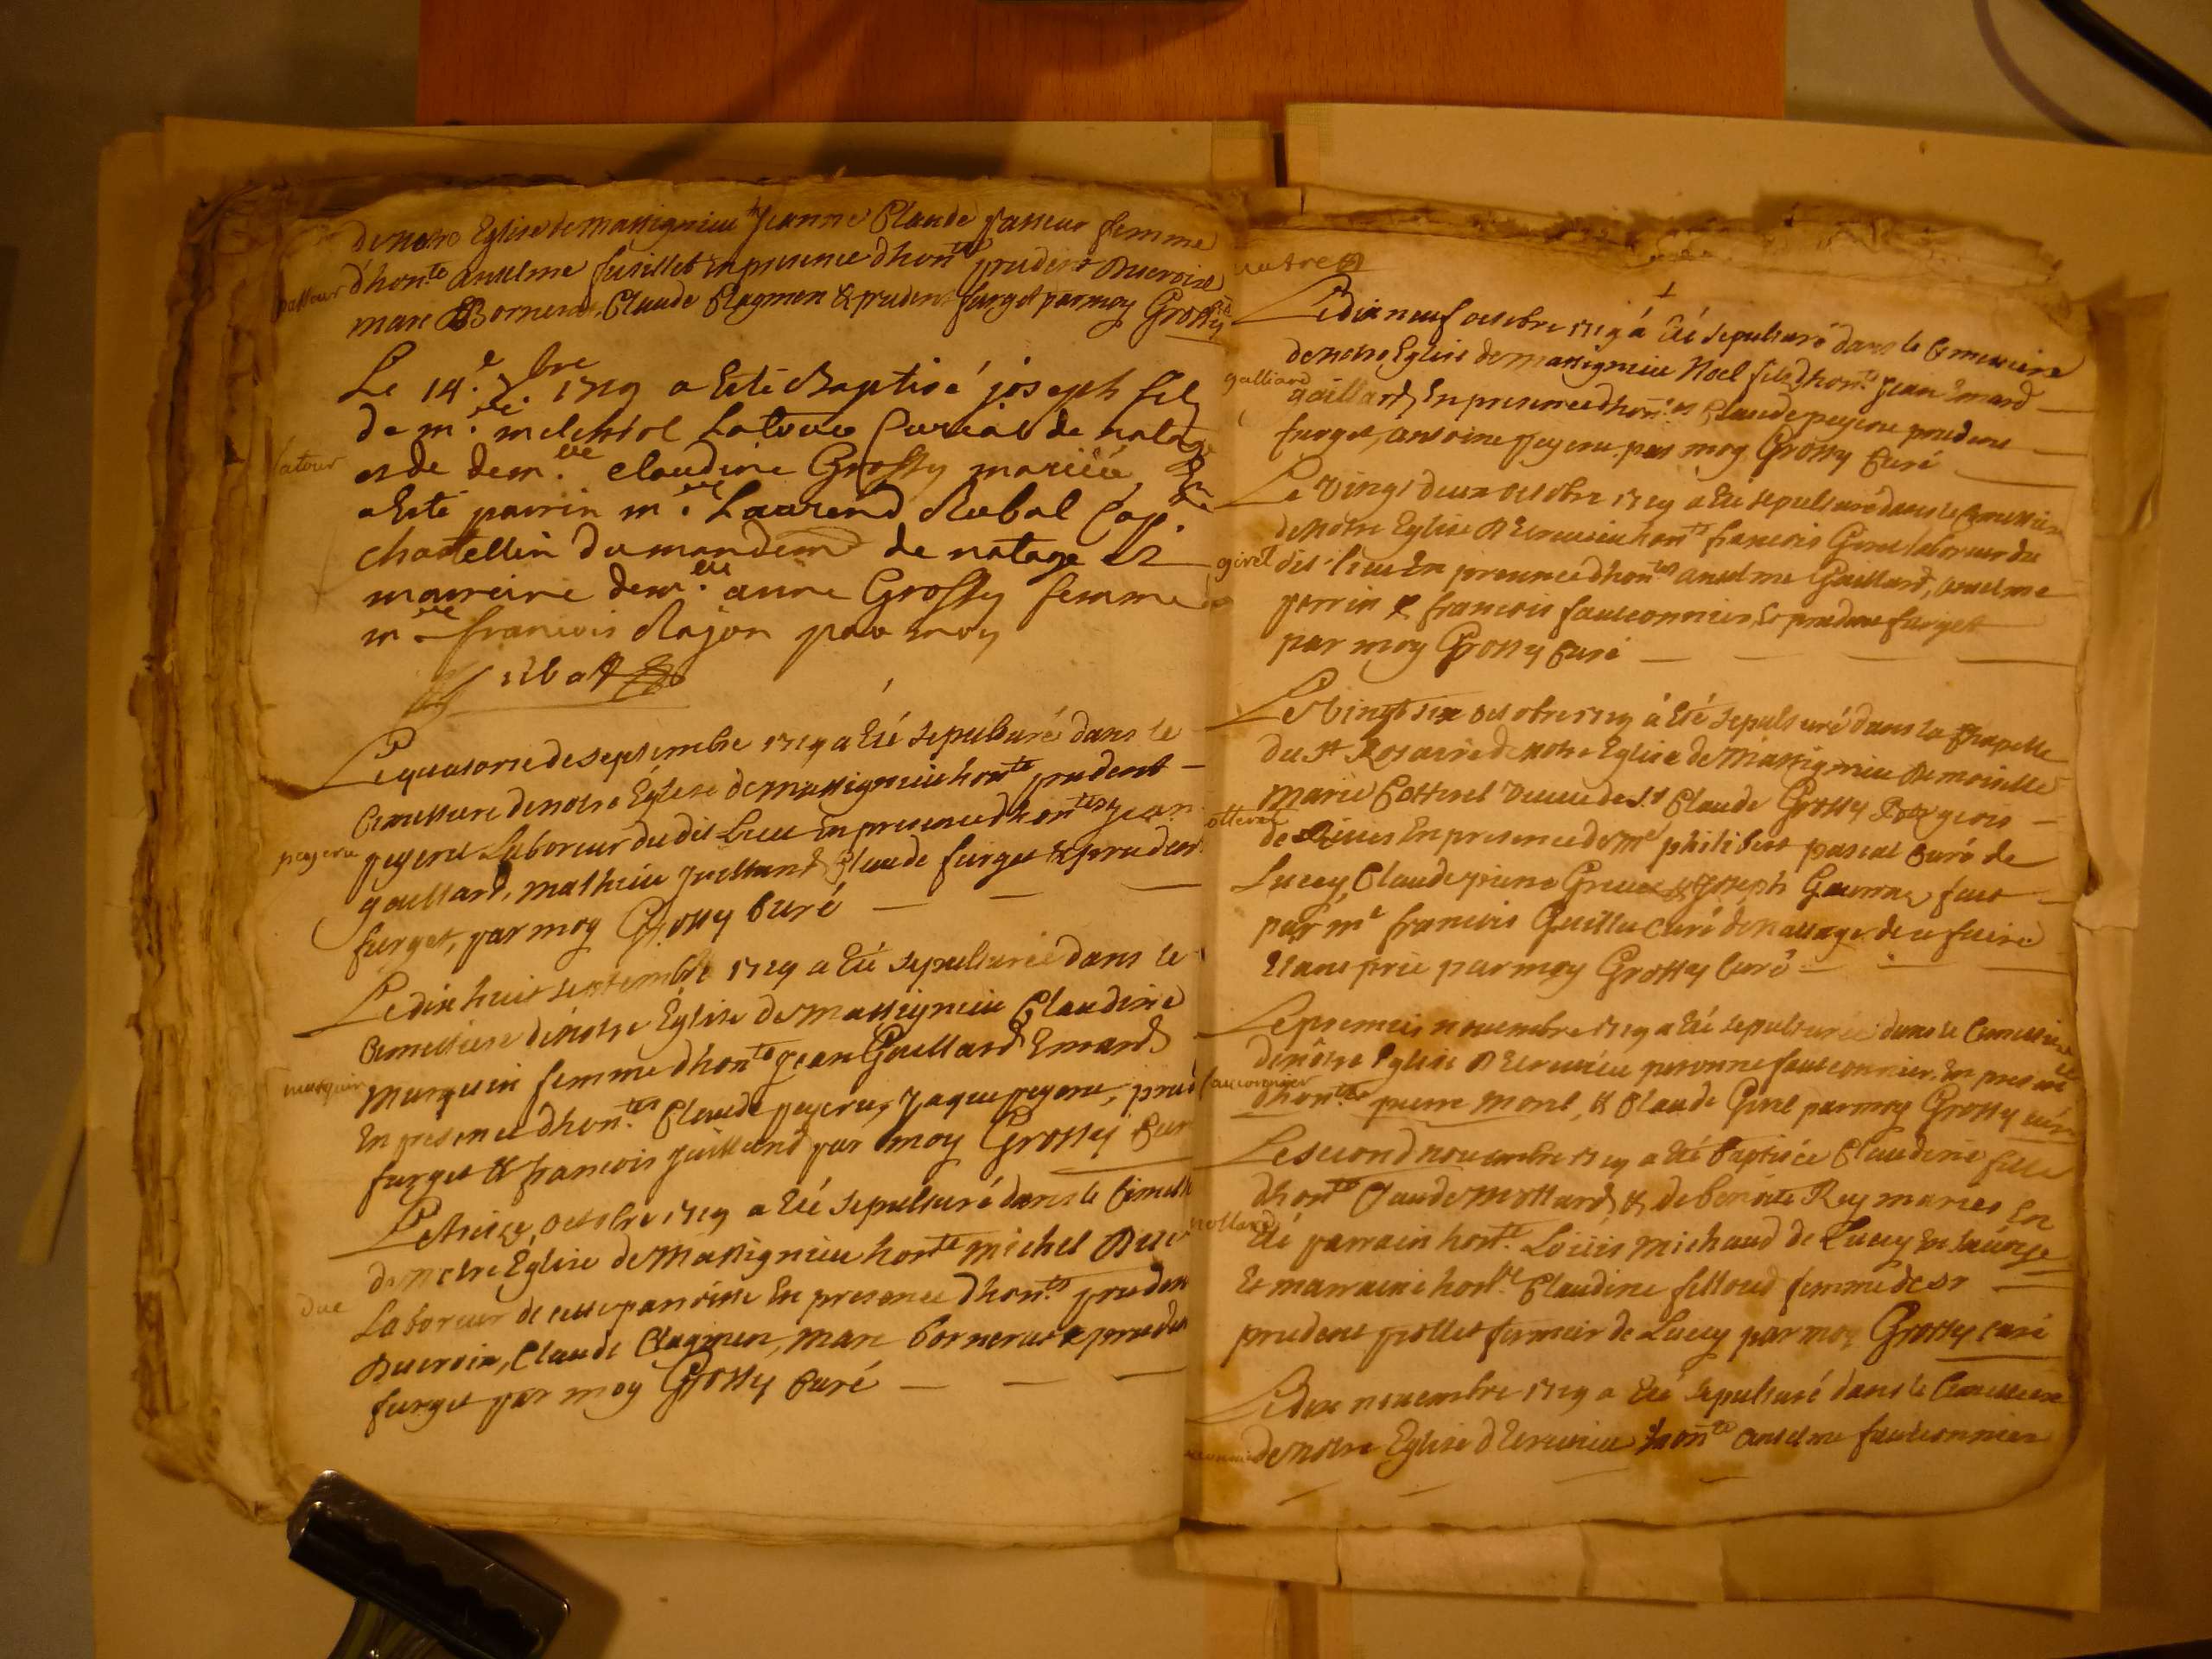 de notre Eglise de Massignieu Jeanne Claude passeur femme
passeur d'hon.te anselme fusillet en presence d'hon.tes prudent Ducroix
marc Bornerat, Claude Clagmen & prudent furget par moy Grossy
Le 14.e 7bre 1719 a esté Baptisé joseph fils
de m.re melchiol Latour Curial de natage
latour et de dem.lle claudine Grossy mariés, En
a esté parrin m.re Laurend Rubal
chastellin du mandem de natage Et
marreine dem.lle anne Grossy femme
m.re francois Rajon par moy
Le quatorze de septembre 1719 a été sepulturé dans le
Cimettiere de notre Église de Massignieu hon.te prudent
payeru peyeru Laboreur du dit Lieu en presence d'hon.tes jean
gaillard, mathieu juilland Claude furget & prudent
furget, par moy Grossy Curé
Le dix huit septembre 1719 a été sepulturée dans le
Cimettiere de notre Église de Massignieu Claudine
marquin Marquin femme d'hon.te jean Gaillard Emard
En presence d'hon.tes Claude peyeru, Jaque peyeru, prud
furget & francois juilland par moy Grossy Cur
Le treize octobre 1719 a été sepulturé dans le Cimett
de notre Eglise de Massignieu hon.te michel Duc
duc Laboreur de cette parroisse En presence d'hon.tes pruden
Ducroix, Claude Clagmen, marc bornerat & pruden
furget par moy Grossy Curé
Le dix neuf octobre 1719 á été sepulturé dans le Cimettiere
de notre Eglise de Massignieu Noel fils d'hon.te jean Emard
galliard gaillard En presence d'hon.tes Claude peyeru prudent
furget, antoine peyeru par moy Grossy Curé
Le vingt deux octobre 1719 a été sepulturé dans le Cimettiere
de notre Eglise D'Ecrevieu hon.te francois Giret laboreur du
giret dit lieu En presence d'hon.tes anselme Gaillard, anselme
perrin & francois fauconnier, & prudent furget
par moy Grossy Curé
Le vingt six octobre 1719 á été sepulturé dans la Chapelle
du St Rosaire de notre Eglise de Massignieu Demoiselle
Marie Cotterel veuve de S.r Claude Grossy Bourgeois
de En presence de M.e philibert pascal Curé de
Lucey, Claude Grece & joseph fait
par m.e francois Guillu Curé de nattage de ce faire
étant prié par moy Grossy Curé
Le premier novembre 1719 a été sepulturée dans le Cimettiere
de nôtre Eglise D'Ecrevieu peronne fauconnier. En presence
d'hon.tes pierre Morel, & Claude Giret par moy Grossy curé
Le second novembre 1719 a été baptisée Claudine fille
d'hon.te Claude Mottard & de benoite Rey mariés En
été parrain hon.te Loüis Michaud de Lucey En Savoye
Et marraine hon.te Claudine felloud femme de sr
prudent pollet fermier de Lucey par moy Grossy curé
Le dix novembre 1719 a été sepulturé dans le Cimettiere
de notre Eglise d'Ecrevieu hon.te anselme fauconnier